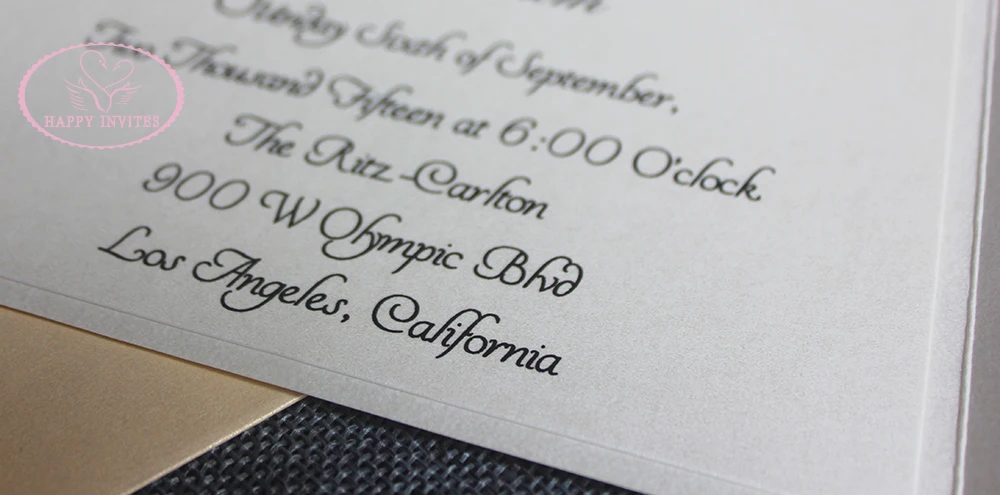 Sunday Sixth of September,
Two Thousand Fifteen at 6:00 O'clock
The Ritz-Carlton
900 W Olympic Blvd
Los Angeles, California
HAPPY INVITES